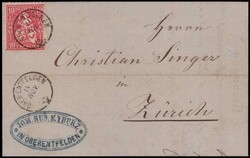 10
OBERENTFELDEN
Herrn
Christian Singer
in
Zürich
OBERENTFELDEN
JOH. RUD. KYBURZ
IN OBERENTFELDEN